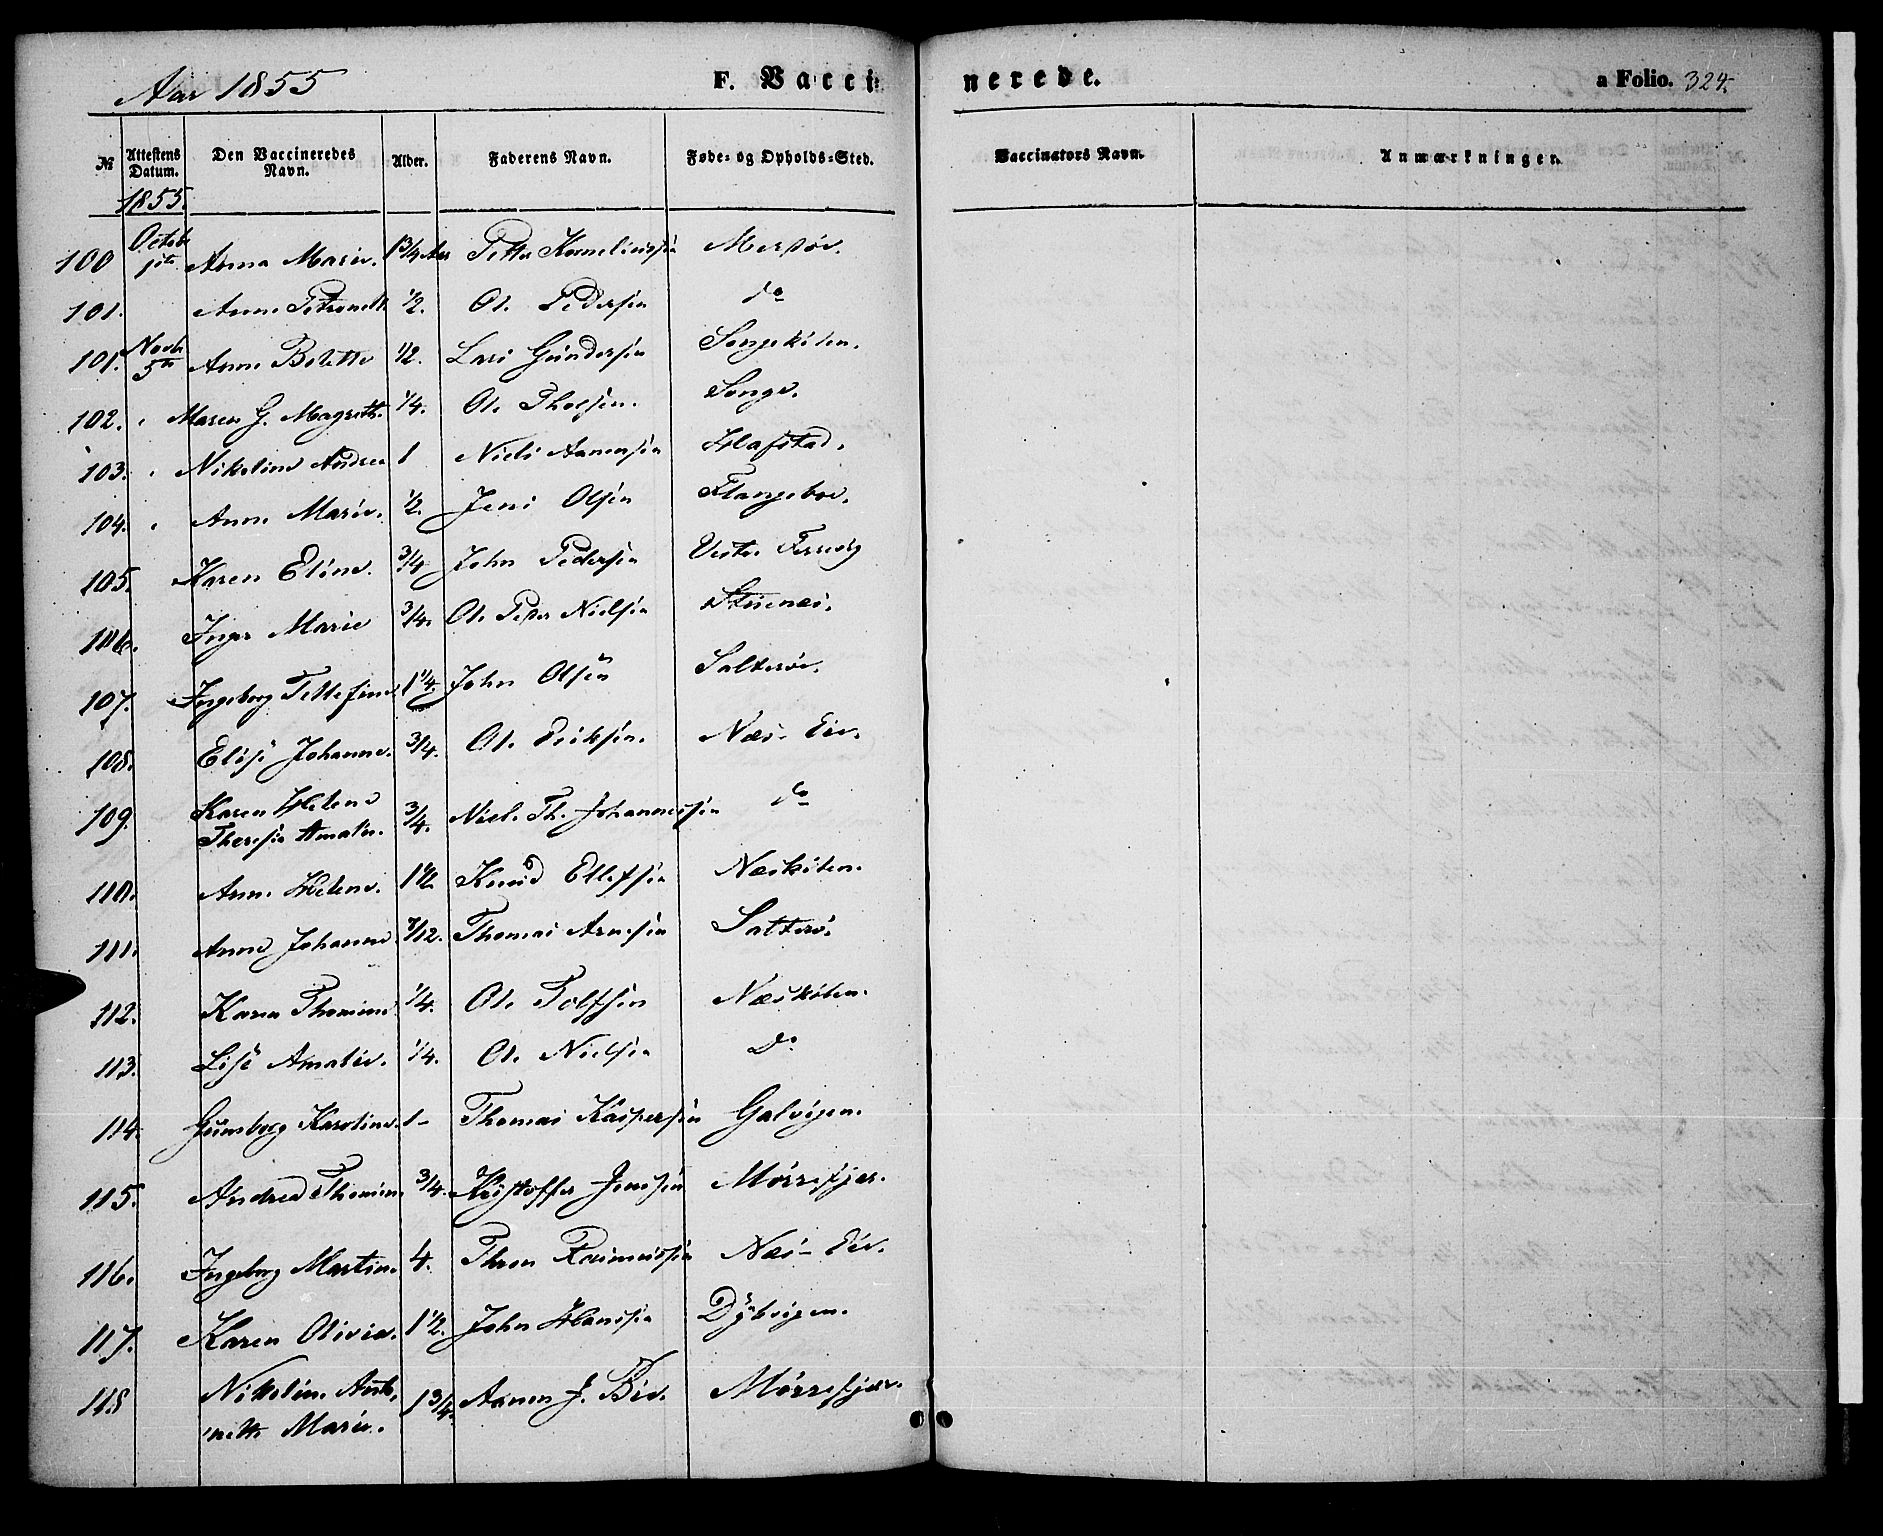 Aar 1855 F. Vaccinerede. a Folio. 324.
№ Attestens Datum. Den Vaccineredes Navn. Alder. Faderens Navn. Føde- og Opholds-Sted. Vaccinators Navn. Anmærkninger.
1855.
100 Octob 1ste Anna Marie. 1 3/4 Aar Petter Kornelius​sen
101. Anne Petronelle 1/2. Ole Pedersen do
101. Novbr 5te Anne Bolette 1/2. Lars Gundersen Songekilen.
102. Maren G. Magreth. 1/4. Ole Songe.
103. Nikoline Andrea 1 Niels Aanensen Hafstad.
104. Anne Marie. 1/2. Jens Olsen Flangeboe.
105. Karen Eline. 3/4 John Pedersen Vestre
106. Inger Marie 3/4. Ole Peter Nielsen
107. Ingeborg Tellefine 1 1/4. John Olsen Salterøe.
108. Elise Johanne. 3/4. Ole Eriksen. Næs-Eie.
109. Karen Helene Theresie Amalie. 3/4. Niels Th. Johannessen do
110. Anne Helene. 1 1/2 Knud Ellefsen Næskilen.
111. Anne Johanne. 7/12. Thomas Arnesen Salterø.
112. Karen Thomine 1/4. Ole Tolfsen Næskilen.
113. Lise Amalie. 1/4. Ole Nielsen Do
114. Gunborg Karoline. 1- Thomas Kaspersen Galvigen.
115. Andrea Thomine. 3/4. Kristoffer Jensen Mørrefjær.
116. Ingeborg Martine 4. Thron Rasmussen Næs-Eie.
117. Karen Olivia. 1 1/2. John Hanssen Dybvigen.
118 Nikoline Anto- 1 3/4. Aanen J. Bie. Mørrefjær.
nette Marie.